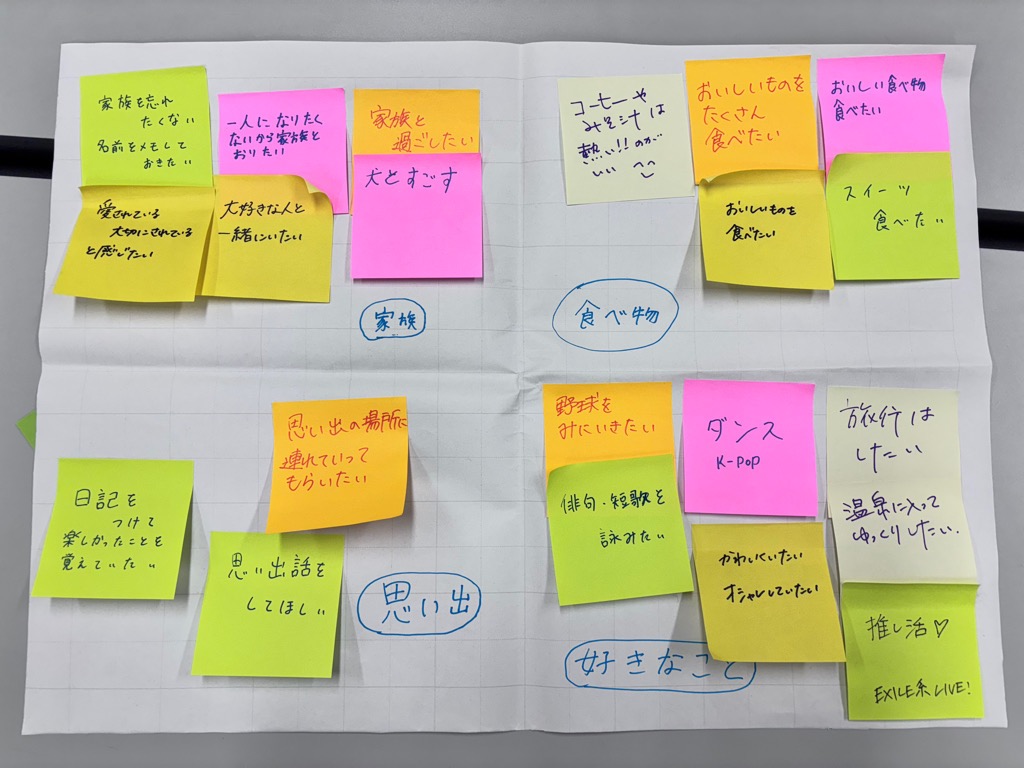 家族を忘れ
たくない
名前をメモして
おきたい
一人になりたく
ないから家族と
おりたい
家族と
過ごしたい
愛されている
大切にされている
と感じたい
大好きな人と
一緒にいたい
犬とすごす
家族
コーヒーや
みそ汁は
熱い!!のが
いい
おいしいものを
たくさん
食べたい
おいしい食べ物
食べたい
おいしいものを
食べたい
スイーツ
食べたい
食べ物
思い出の場所に
連れていって
もらいたい
日記を
つけて
楽しかったことを
覚えていたい
思い出話を
してほしい
思い出
野球を
みにいきたい
俳句・短歌を
詠みたい
ダンス
K-POP
かわいくいたい
オシャレしていたい
旅行は
したい
温泉に入って
ゆっくりしたい.
推し活♡
EXILE系LIVE!
好きなこと